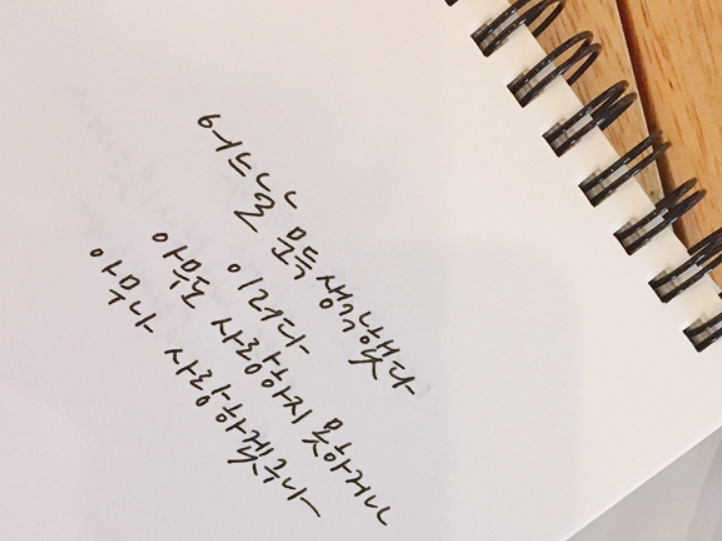 어느날 문득 생각했다
이러다
아무도 사랑하지 못하거나
아무나 사랑하겠구나